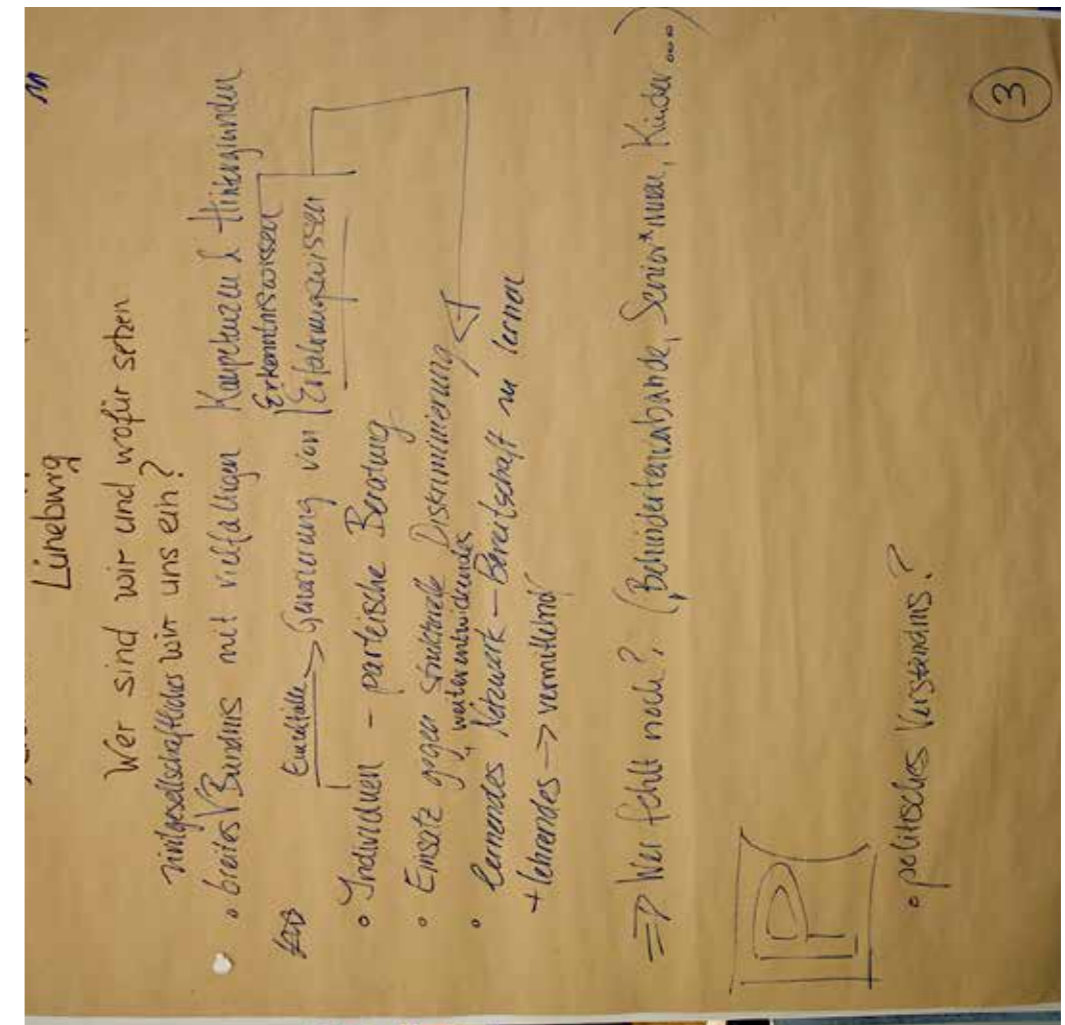 Lüneburg
Wer sind wir und wofür setzen
wir uns ein?
zivilgesellschaftliches
• breites √ Bündnis mit vielfältigen Kompetenzen & Hintergründen
Erkenntniswissen
Einzelfälle -> Generierung von Erfahrungswissen
• Individuen - parteiische Beratung
• Einsatz gegen strukturelle Diskriminierung
+ weiterentwickelndes
• lernendes Netzwerk - Bereitschaft zu lernen
+ lehrendes -> vermittelnd
=> Wer fehlt noch? (Behindertenverbände, Senior*innen, Kinder ...)
P
• politisches Verständnis?
3